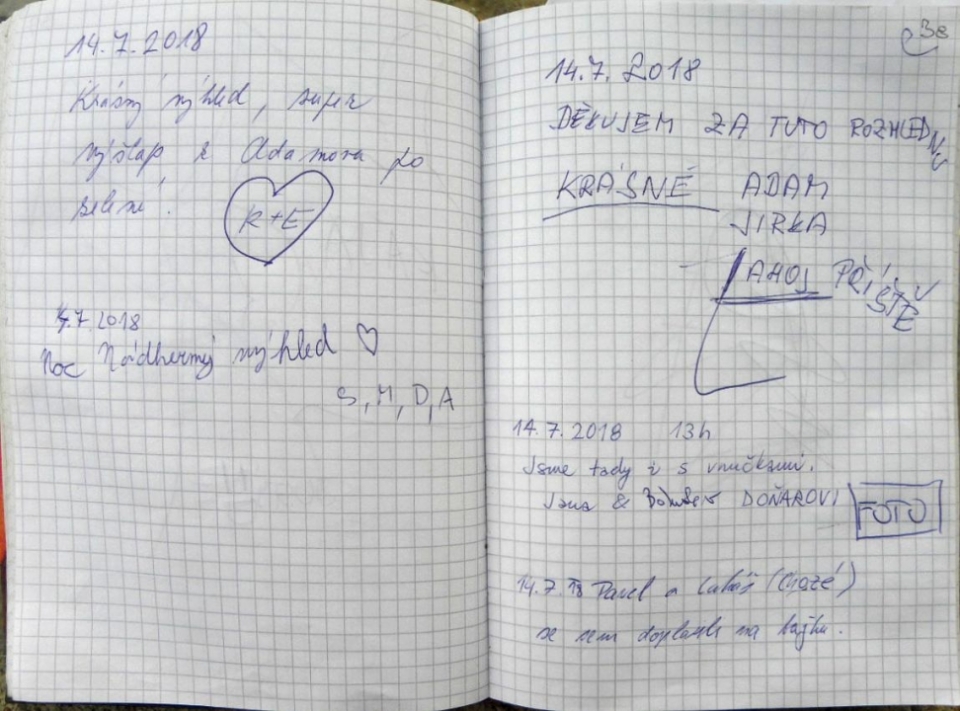 14.7.2018
Krásný výhled, super
výšlap z Adamova po
zelené.
R+E
7.7 2018
Moc Nádherný výhled ♡
S, M, D, A
38
14.7.2018
DĚKUJEM ZA TUTO ROZHLEDNU
KRÁSNĚ ADAM
JIRKA
AHOJ PŘÍŠTĚ
14.7.2018 13h
Jsme tady i s vnučkami.
Jana & DOŇAROVI
FOTO
14.7.18 Pavel a Lukáš
se sem doplazili na bajku.